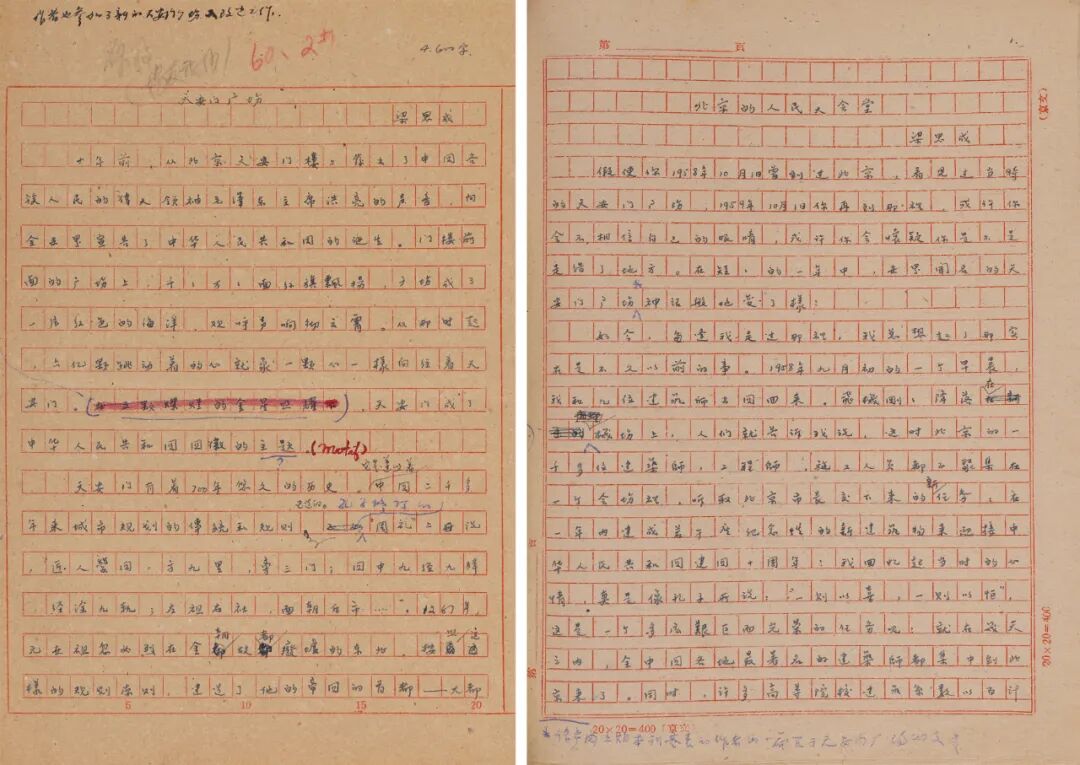 4.600字.
天安门广场
梁思成
十年前，从北京天安门楼上传出了中国各
族人民的伟大领袖毛泽东主席洪亮的声音，向
全世界宣告了中华人民共和国的诞生。门楼前
面的广场上，千千万万面红旗飘扬，广场成了
一片红色的海洋，欢呼声响彻云霄。从那时起
，上亿颗跳动着的心就象一颗心一样向往着天
安门。天安门成了
中华人民共和国国徽的主题。(motif)
天安门有着700年悠久的历史。中国三千多
年来城市规划的传统 规则 周礼上 说
，匠人營国，方九里，旁三门；国中九经九緯
，经涂九軌；左祖右社，面朝后市……。
元世祖忽必烈在金朝故都廢墟的东北，按照这
樣的规划原则，建造了他的帝国的首都——大都
5 10 15 20
第 頁
1.
北京的人民大会堂
梁思成
假使你1958年10月1日曾到过北京，看见过当时
的天安门广场，1959年10月1日你再到那裡，或许你
会不相信自己的眼睛，或许你会懷疑你是不是
走错了地方。在短短的一年中，世界闻名的天
安门广场 神话般地变了樣：
如今，每逢我走过那裡，我总想起了那实
在是不久以前的事。1958年九月初的一个早晨，
我和几位建筑师出国回来。飛機刚刚降落在
機场上，人们就告诉我说，这时北京的一
千多位建築师，工程师，施工人员都正聚集在
一个会场裡，听取北京市最近下来的新任务：在
一年内建成若干座纪念性的新建筑物来迎接中
华人民共和国建国十周年：我回忆起当时的心
情，真是像孔子所说：“一则以喜，一则以惧”，
这是一个多么艱巨而光荣的任务呢：就在这天
之内，全中国各地最著名的建築师都集中到北
京来了。同时，许多高等院校建筑系数以百计
20×20=400（京文）
(京文)
20×20=400